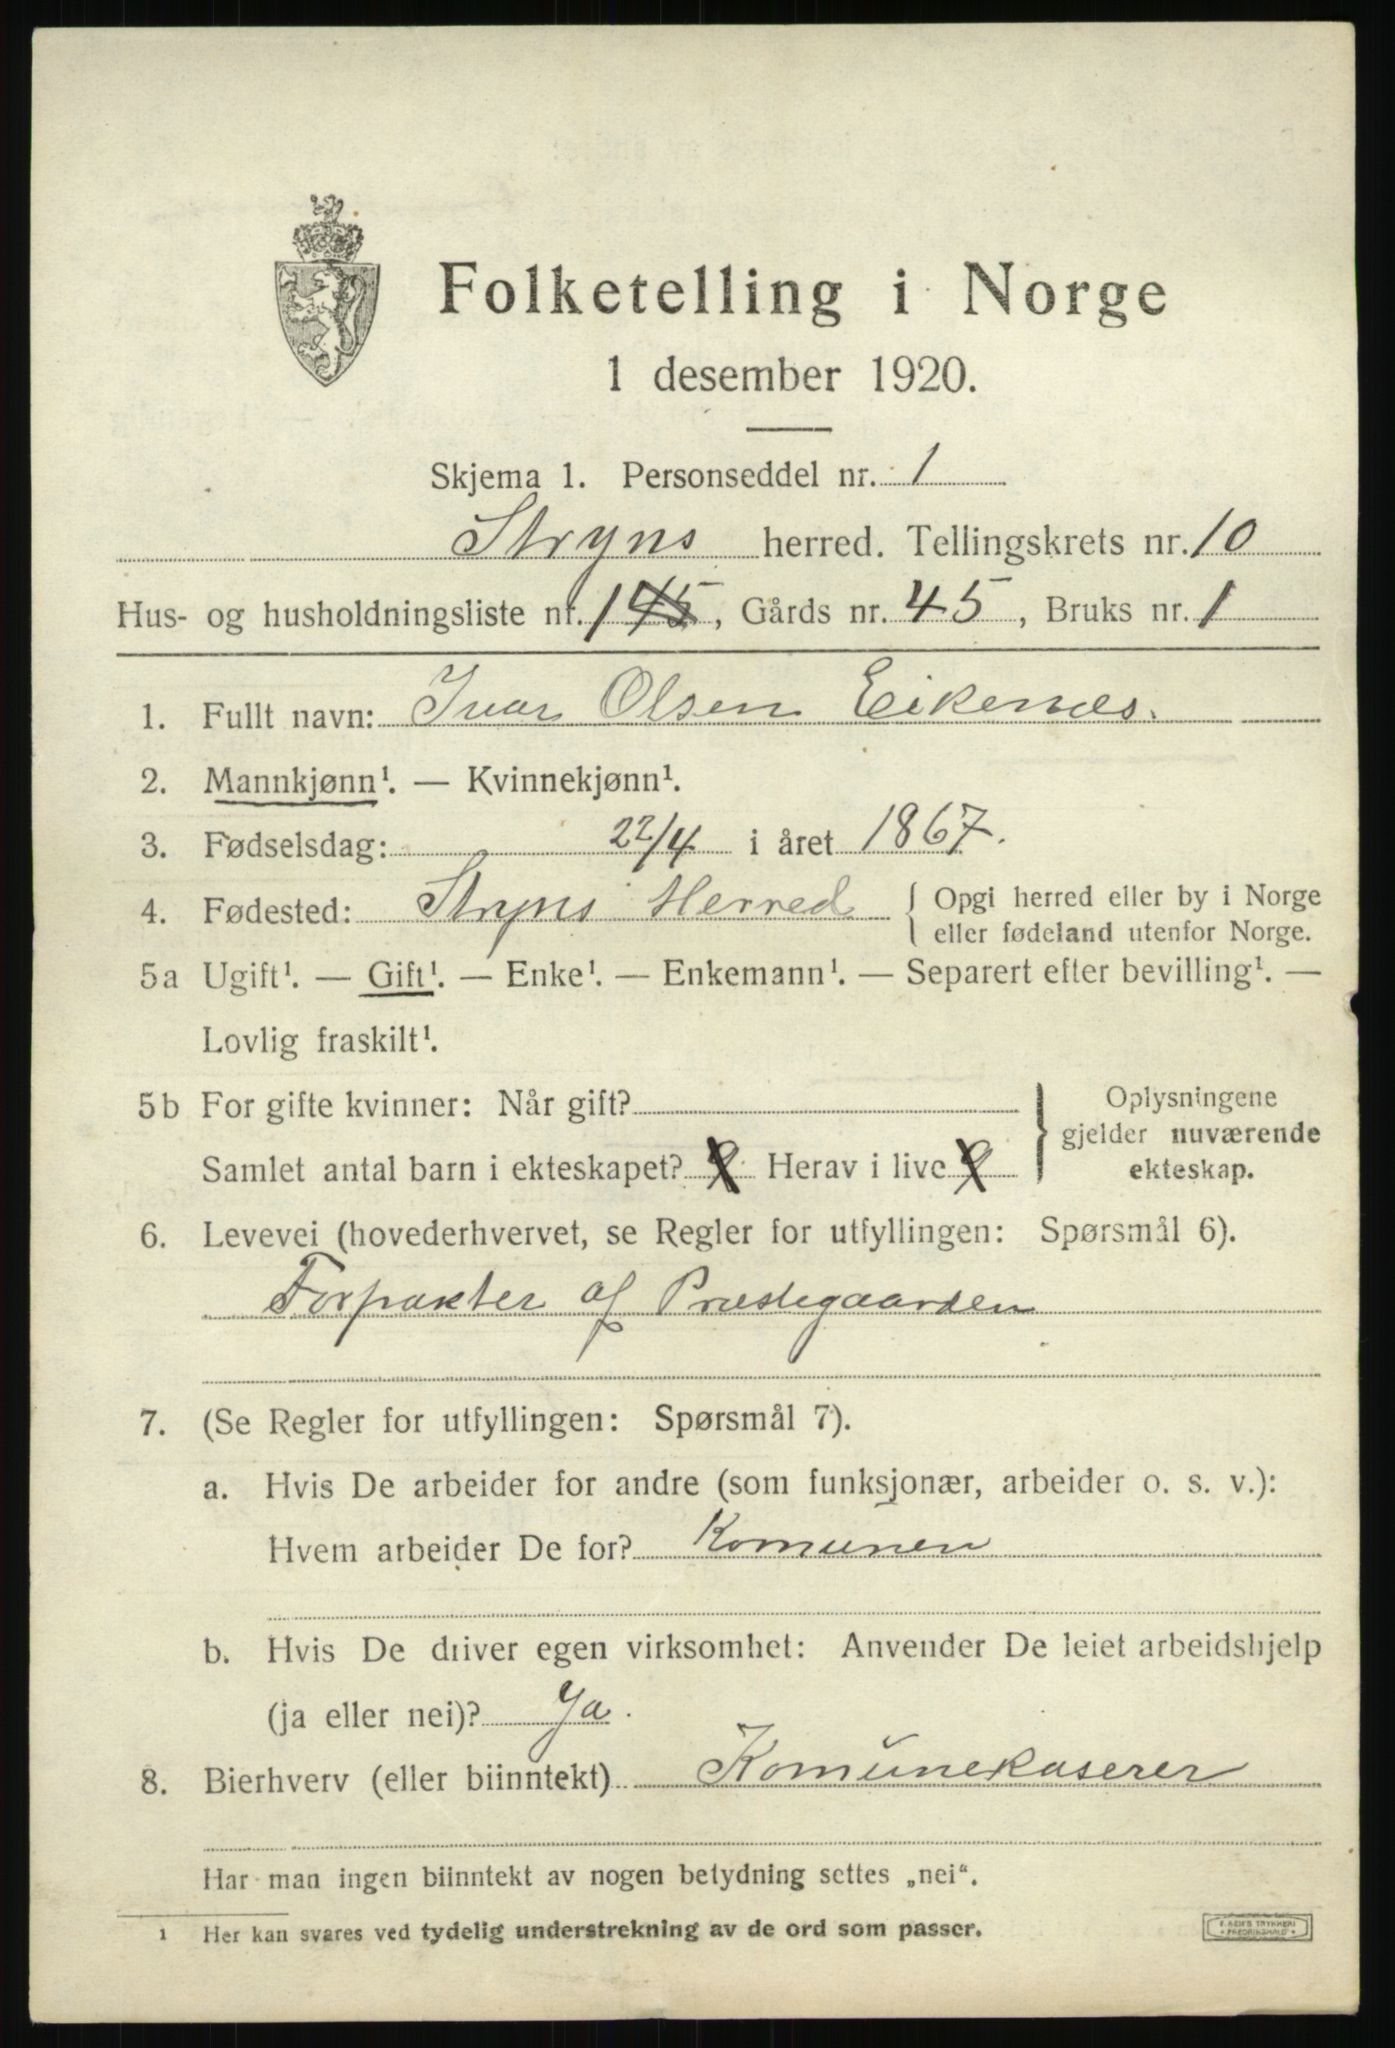 Folketelling i Norge
1 desember 1920.
Skjema 1. Personseddel nr. 1
Stryns herred. Tellingskrets nr. 10
Hus- og husholdningsliste nr. 145, Gårds nr. 45, Bruks nr. 1
1. Fullt navn: Ivar Olsen Eikenæs.
2. Mannkjønn¹. — Kvinnekjønn¹.
3. Fødselsdag: 22/4 i året 1867.
4. Fødested: Stryns Herred { Opgi herred eller by i Norge
eller fødeland utenfor Norge.
5a Ugift¹. — Gift¹. — Enke¹. — Enkemann¹. — Separert efter bevilling¹. —
Lovlig fraskilt¹.
5b For gifte kvinner: Når gift?
Samlet antal barn i ekteskapet? 9 Herav i live 9
} Oplysningene
gjelder nuværende
ekteskap.
6. Levevei (hovederhvervet, se Regler for utfyllingen: Spørsmål 6).
Forpakter af Præstegaarden
7. (Se Regler for utfyllingen: Spørsmål 7).
a. Hvis De arbeider for andre (som funksjonær, arbeider o. s. v.):
Hvem arbeider De for? Komunen
b. Hvis De driver egen virksomhet: Anvender De leiet arbeidshjelp
(ja eller nei)? Ja.
8. Bierhverv (eller biinntekt) Komunekaserer
Har man ingen biinntekt av nogen betydning settes „nei“.
1 Her kan svares ved tydelig understrekning av de ord som passer.
TRYKKERI
FREDRIKSHALD